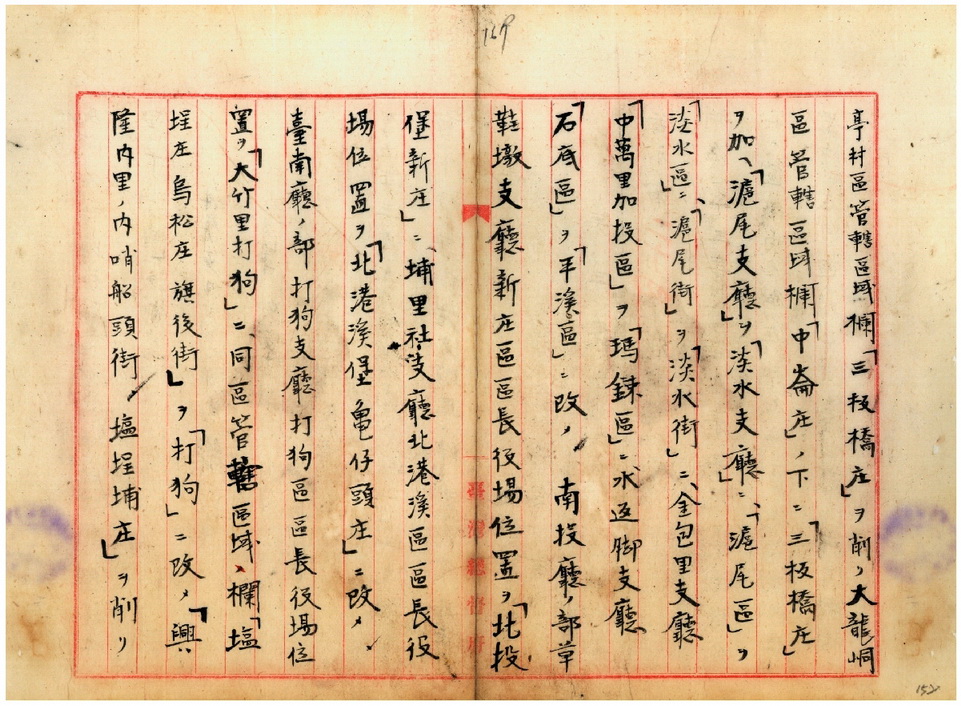 亭村區管轄區域欄「三板橋庄」ヲ削リ大龍峒
區管轄區域欄「中崙庄」ノ下ニ「三板橋庄」
ヲ加ヘ「滬尾支廳」ヲ「淡水支廳」ニ、「滬尾區」ヲ
「淡水區」ニ、「滬尾街」ヲ「淡水街」ニ、金包里支廳
「中萬里加投區」ヲ「瑪鋉區」ニ水返脚支廳
「石底區」ヲ「平溪區」ニ改メ南投廳ノ部草
鞋墩支廳新庄區區長役場位置ヲ「北投
堡新庄」ニ、埔里社支廳北港溪區區長役
場位置ヲ「北港溪堡龜仔頭庄」ニ改メ
臺南廳ノ部打狗支廳打狗區區長役場位
置ヲ「大竹里打狗」ニ同區管轄區域欄「塩
埕庄烏松庄旗後街」ヲ「打狗」ニ改メ「興
隆內里ノ內哨船頭街塩埕埔庄」ヲ削リ
臺灣總督府